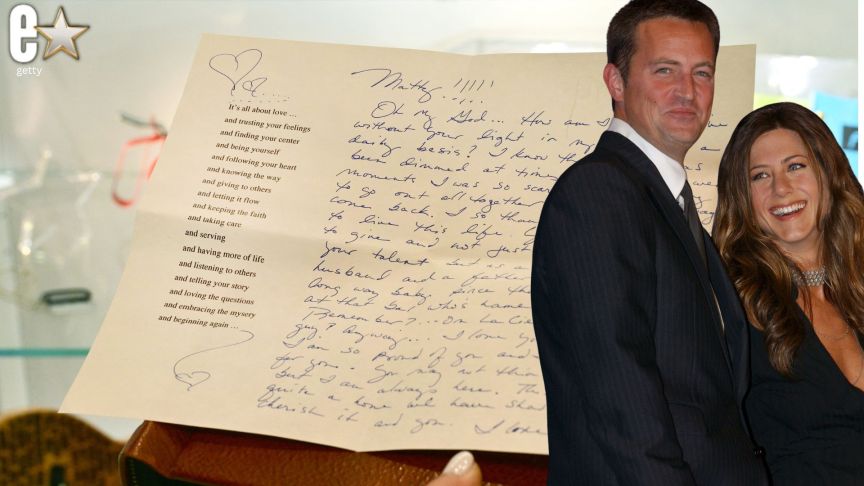 e
getty
It's all about love ...
and trusting your feelings
and finding your center
and being yourself
and following your heart
and knowing the way
and giving to others
and letting it flow
and keeping the faith
and taking care
and serving
and having more of life
and listening to others
and telling your story
and loving the questions
and embracing the mysery
and beginning again ...
Matty!!!!!
Oh my God... How am I
without your light in my
daily basis? I know the
been dimmed at
moments I was so
to go out all together
come back. I so
to live this life
to give and not just
your talent but as a
husband and a
long way baby. Since
at that bar who's name
Remember?... On La Cie
guy? Anyway... I love
I am so proud of you and
for you. You may not
but I am always here.
quite a home we have
cherish it and you. I love